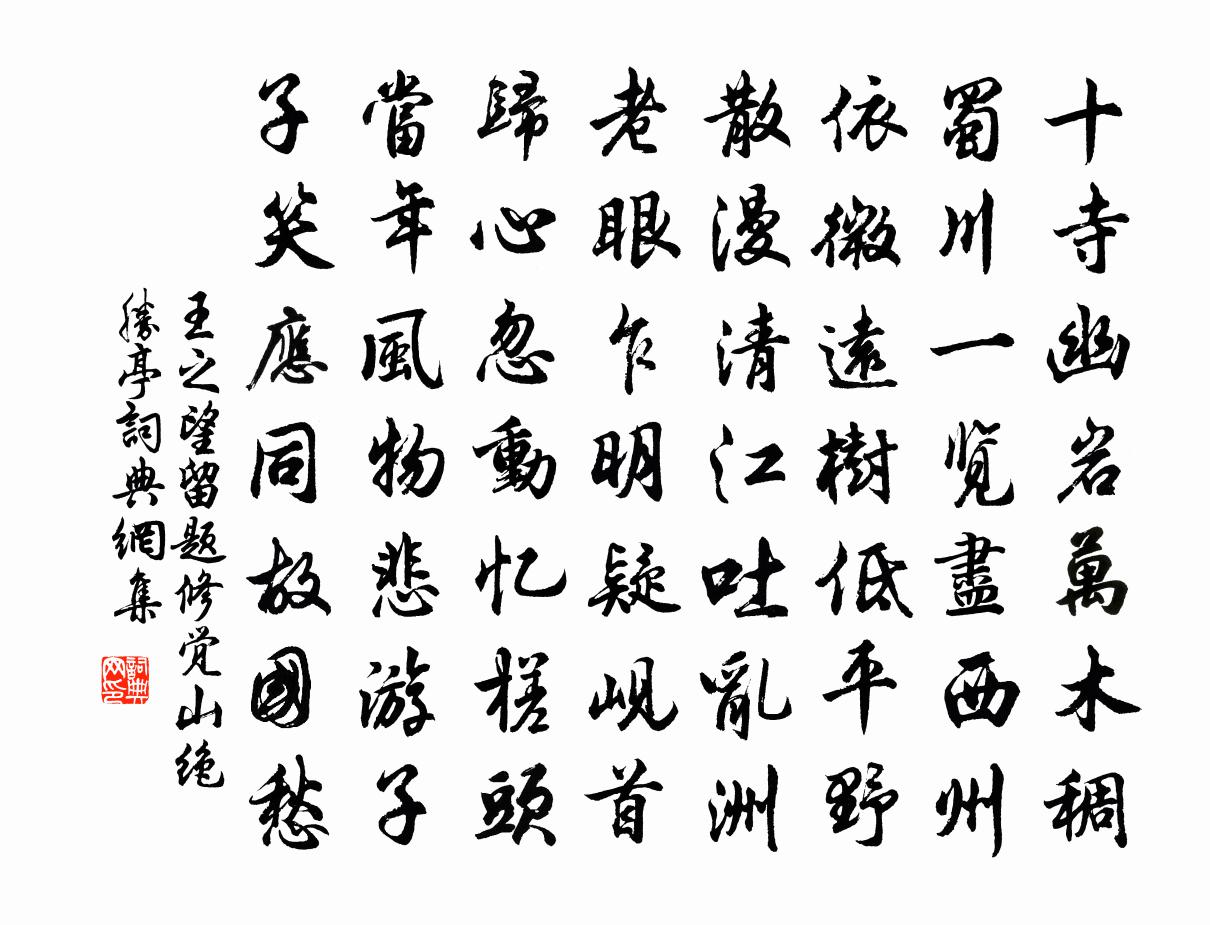 十寺幽岩萬木稠
蜀川一览盡西州
依微遠樹低平野
散漫清江吐亂洲
老眼乍明疑峴首
歸心忽動忆槎頭
當年風物悲游子
子笑應同故國愁
王之望留題修觉山绝
勝亭詞典網集
詞典网印